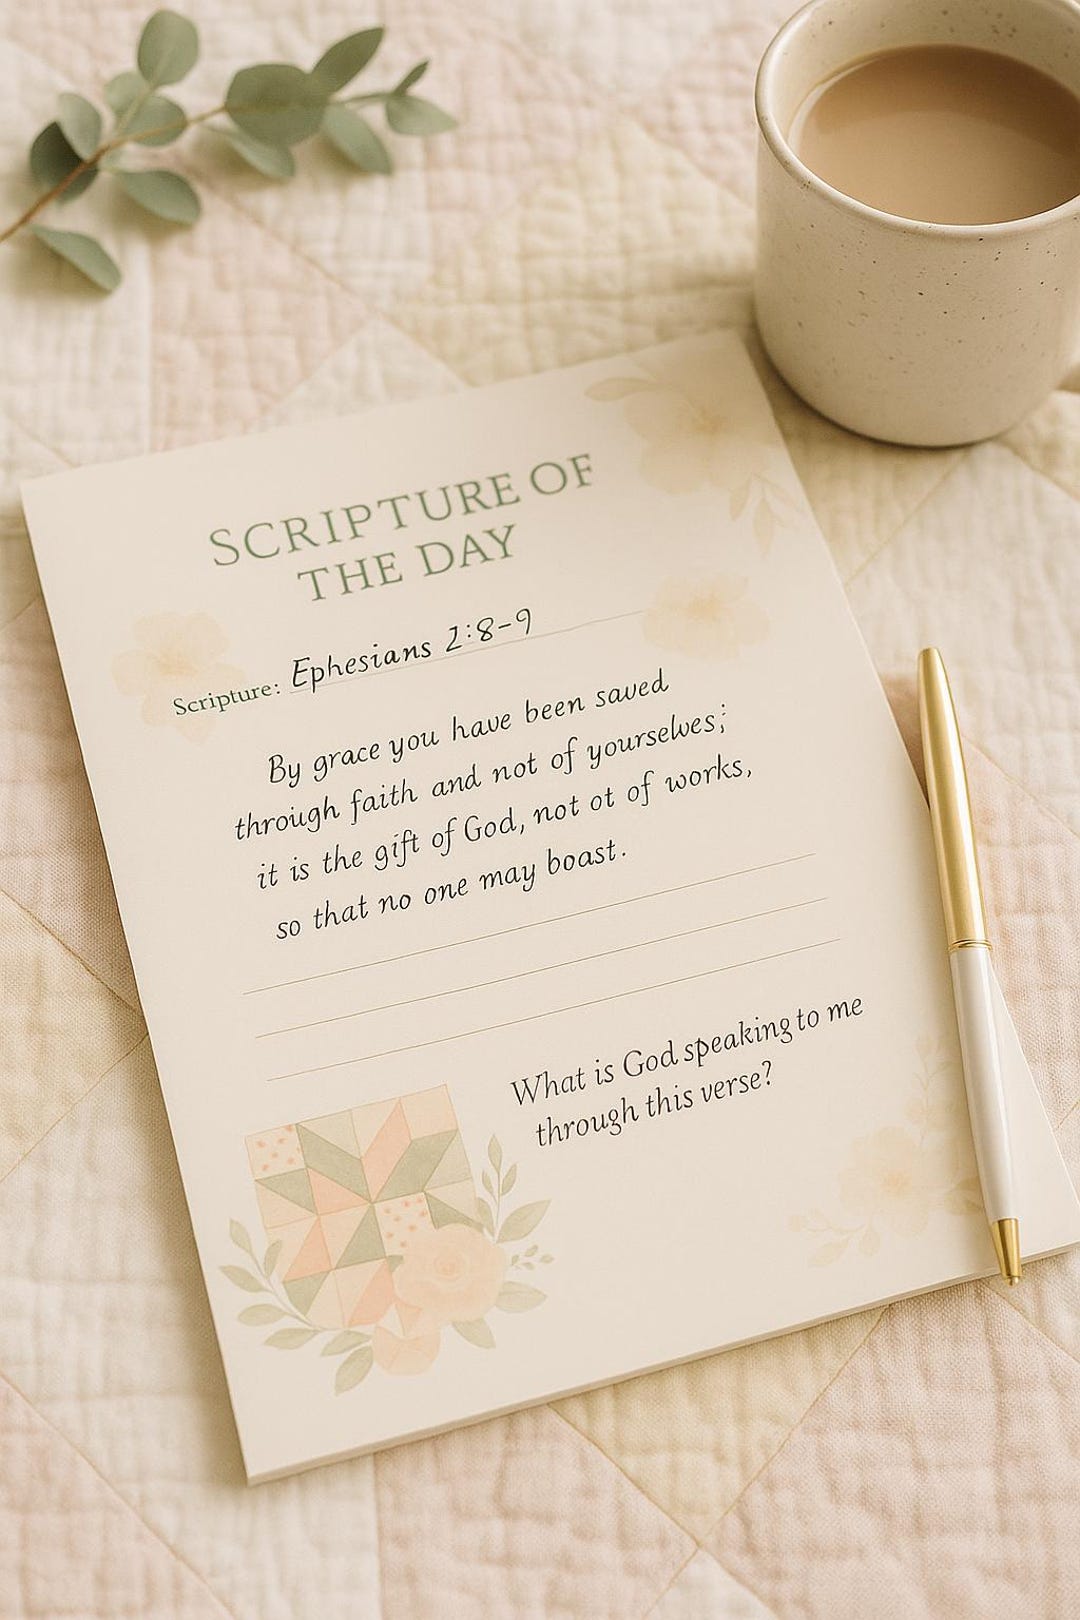 SCRIPTURE OF
THE DAY
Scripture: Ephesians 2:8-9
By grace you have been saved
through faith and not of yourselves;
it is the gift of God, not ot of works,
so that no one may boast.
What is God speaking to me
through this verse?